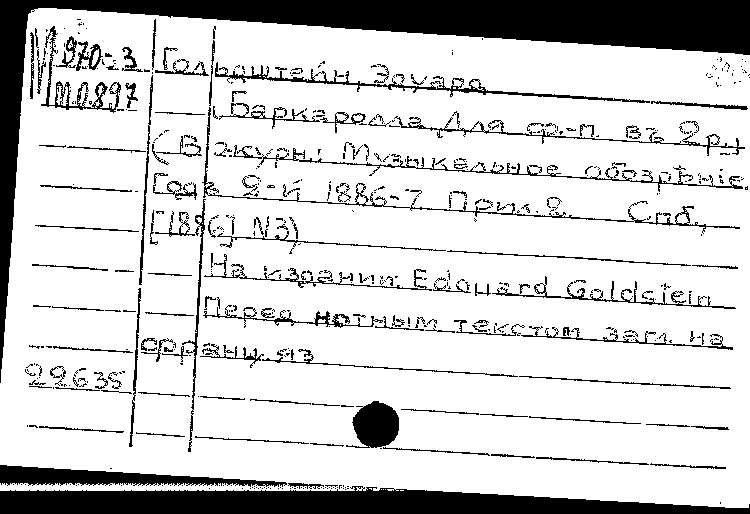 М 970-3 Гольдштейн, Эдуард
М.О.897
Баркаролла для ф.-п. въ 2р.,
(В журн.: Музыкальное обозрѣніе.
Годъ 2-й 1886-7 Прил.2. Спб.,
[1886] N3)
На издании: Edouard Goldstein
Перед нотным текстом загл. на
франц. яз
22635